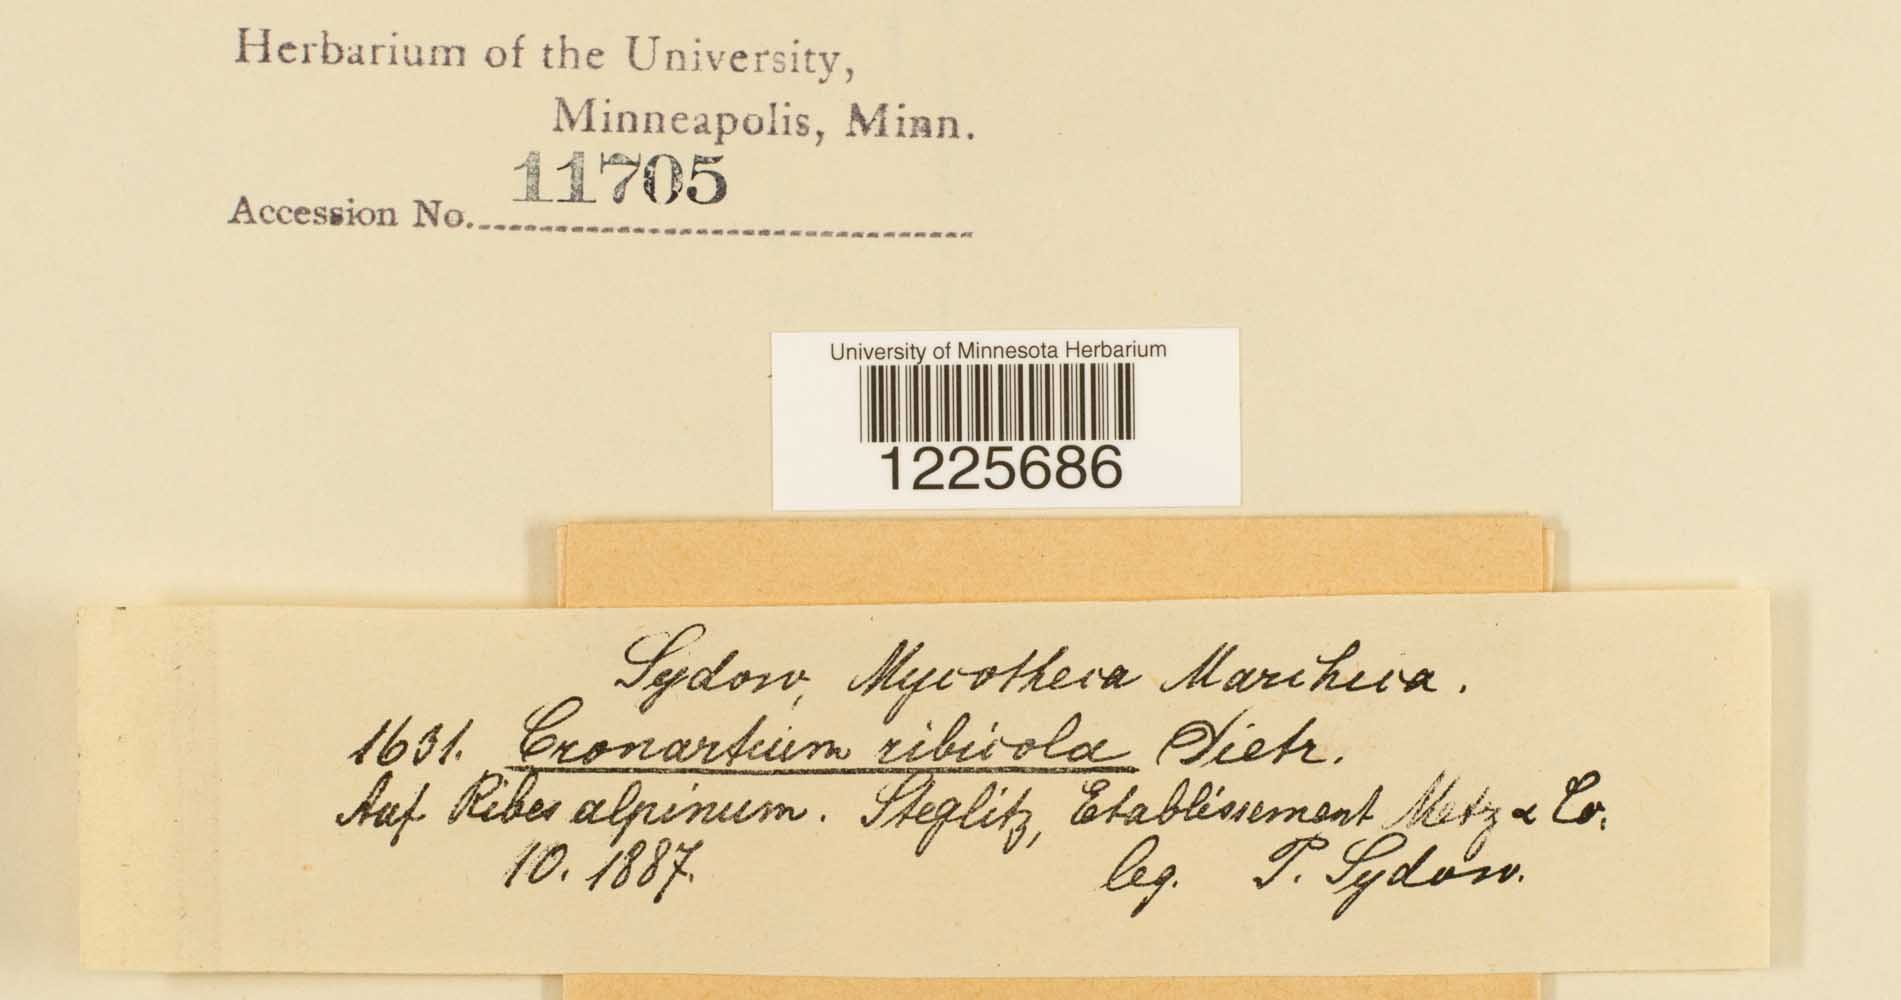 Herbarium of the University,
Minneapolis, Minn.
11705
Accession No.
University of Minnesota Herbarium
1225686
Sydow, Mycotheca Marchica.
1631. Cronartium ribicola Dietr.
Auf Ribes alpinum. Steglitz, Etablissement Metz & Co.
10. 1887.
leg. P. Sydow.